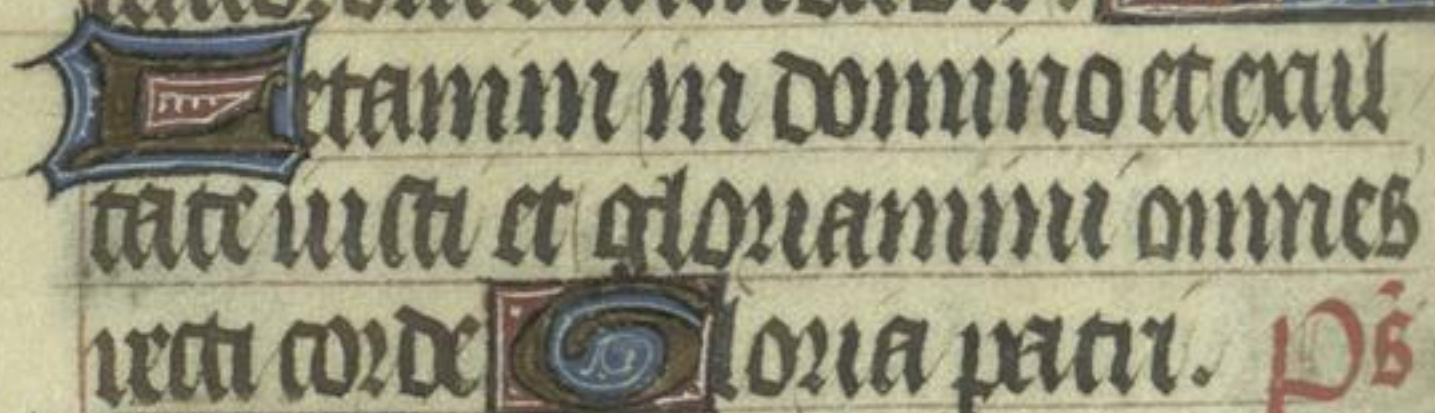 Letamini in domino et exul
tate iusti et gloriamini omnes
recti corde Gloria patri. Ps